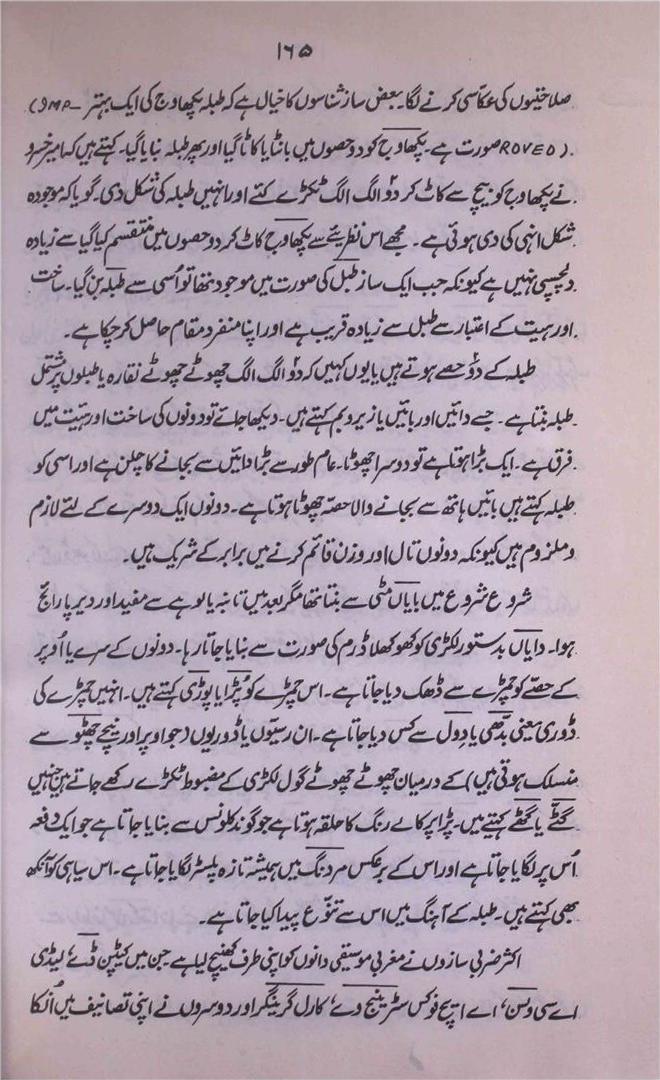 ۱۶۵
صلاحیتوں کی عکاسی کرنے لگا۔ بعض ساز شناسوں کا خیال ہے کہ طبلہ پکھاوج کی ایک بہتر (IMP-
ROVED) صورت ہے۔ پکھاوج کو دو حصوں میں بانٹا یا کاٹا گیا اور پھر طبلہ بنایا گیا۔ کہتے ہیں کہ امیر خسرو
نے پکھاوج کو بیچ سے کاٹ کر دو الگ الگ ٹکڑے کئے اور انہیں طبلہ کی شکل دی۔ گویا کہ موجودہ
شکل انہی کی دی ہوئی ہے۔ مجھے اس نظریئے سے پکھاوج کاٹ کر دو حصوں میں منقسم کیا گیا سے زیادہ
دلچسپی نہیں ہے کیونکہ جب ایک ساز طبل کی صورت میں موجود تھا تو اُسی سے طبلہ بن گیا۔ ساخت
اور ہیت کے اعتبار سے طبل سے زیادہ قریب ہے اور اپنا منفرد مقام حاصل کر چکا ہے۔
طبلہ کے دو حصے ہوتے ہیں یا یوں کہیں کہ دو الگ الگ چھوٹے چھوٹے نقارہ یا طبلوں پر مشتمل
طبلہ بنتا ہے۔ جسے دائیں اور بائیں یا زیر و بم کہتے ہیں۔ دیکھا جائے تو دونوں کی ساخت اور ہیّت میں
فرق ہے۔ ایک بڑا ہوتا ہے تو دوسرا چھوٹا۔ عام طور سے بڑا دائیں سے بجانے کا چلن ہے اور اسی کو
طبلہ کہتے ہیں بائیں ہاتھ سے بجانے والا حصّہ چھوٹا ہوتا ہے۔ دونوں ایک دوسرے کے لئے لازم
و ملزوم ہیں کیونکہ دونوں تال اور وزن قائم کرنے میں برابر کے شریک ہیں۔
شروع شروع میں بایاں مٹی سے بنتا تھا مگر بعد میں تانبہ یا لوہے سے مفید اور دیر پا رائج
ہوا۔ دایاں بدستور لکڑی کو کھوکھلا ڈرم کی صورت سے بنایا جاتا رہا۔ دونوں کے سرے یا اُوپر
کے حصّے کو چمڑے سے ڈھک دیا جاتا ہے۔ اس چمڑے کو پُڑا یا پوڑی کہتے ہیں۔ انہیں چمڑے کی
ڈوری یعنی بدّھی یا دِول سے کس دیا جاتا ہے۔ ان رسیّوں یا ڈوریوں (جو اوپر اور نیچے چھٹو سے
منسلک ہوتی ہیں) کے درمیان چھوٹے چھوٹے گول لکڑی کے مضبوط ٹکڑے رکھے جاتے ہیں جنہیں
گٹے یا گٹھے کہتے ہیں۔ پڑا پر کالے رنگ کا حلقہ ہوتا ہے جو گوند کلونس سے بنایا جاتا ہے جو ایک دفعہ
اُس پر لگایا جاتا ہے اور اس کے برعکس مردنگ میں ہمیشہ تازہ پلسٹر لگایا جاتا ہے۔ اس سیاہی کو آنکھ
بھی کہتے ہیں۔ طبلہ کے آہنگ میں اس سے تنوّع پیدا کیا جاتا ہے۔
اکثر ضربی سازوں نے مغربی موسیقی دانوں کو اپنی طرف کھینچ لیا ہے جن میں کیپٹن ڈے، لیڈی
اے سی ولسن، اے ایچ فوکس سٹرینج وے، کارل گرینگر اور دوسروں نے اپنی تصانیف میں اُنکا